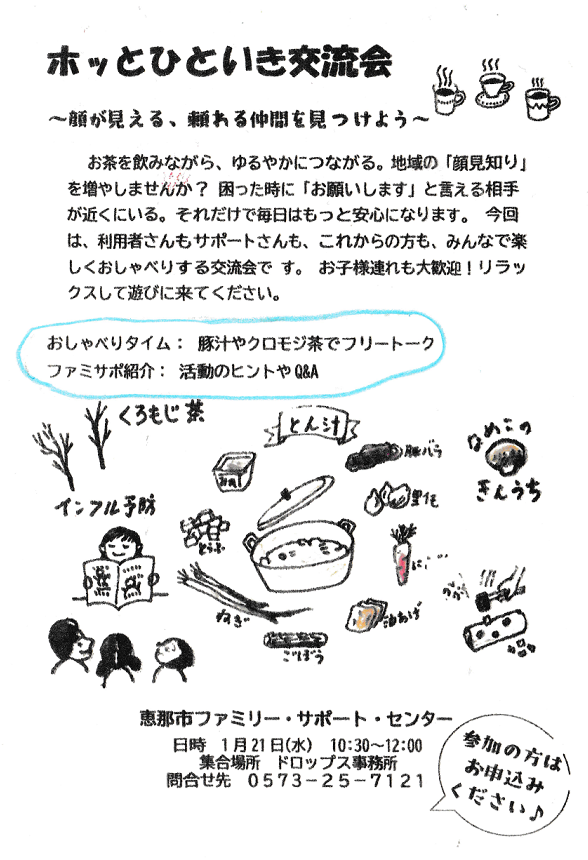 ホッとひといき交流会
～顔が見える、頼れる仲間を見つけよう～
お茶を飲みながら、ゆるやかにつながる。地域の「顔見知り」
を増やしませんか？ 困った時に「お願いします」と言える相手
が近くにいる。それだけで毎日はもっと安心になります。 今回
は、利用者さんもサポートさんも、これからの方も、みんなで楽
しくおしゃべりする交流会で す。 お子様連れも大歓迎！リラッ
クスして遊びに来てください。
おしゃべりタイム： 豚汁やクロモジ茶でフリートーク
ファミサポ紹介： 活動のヒントやQ&A
くろもじ茶
とん汁
なめこの
きんうち
みそ
豚バラ
里芋
インフル予防
とうふ
ねぎ
油あげ
ごぼう
恵那市ファミリー・サポート・センター
日時 1月21日(水) 10:30～12:00
集合場所 ドロップス事務所
問合せ先 ０５７３－２５－７１２１
参加の方は
お申込み
ください♪